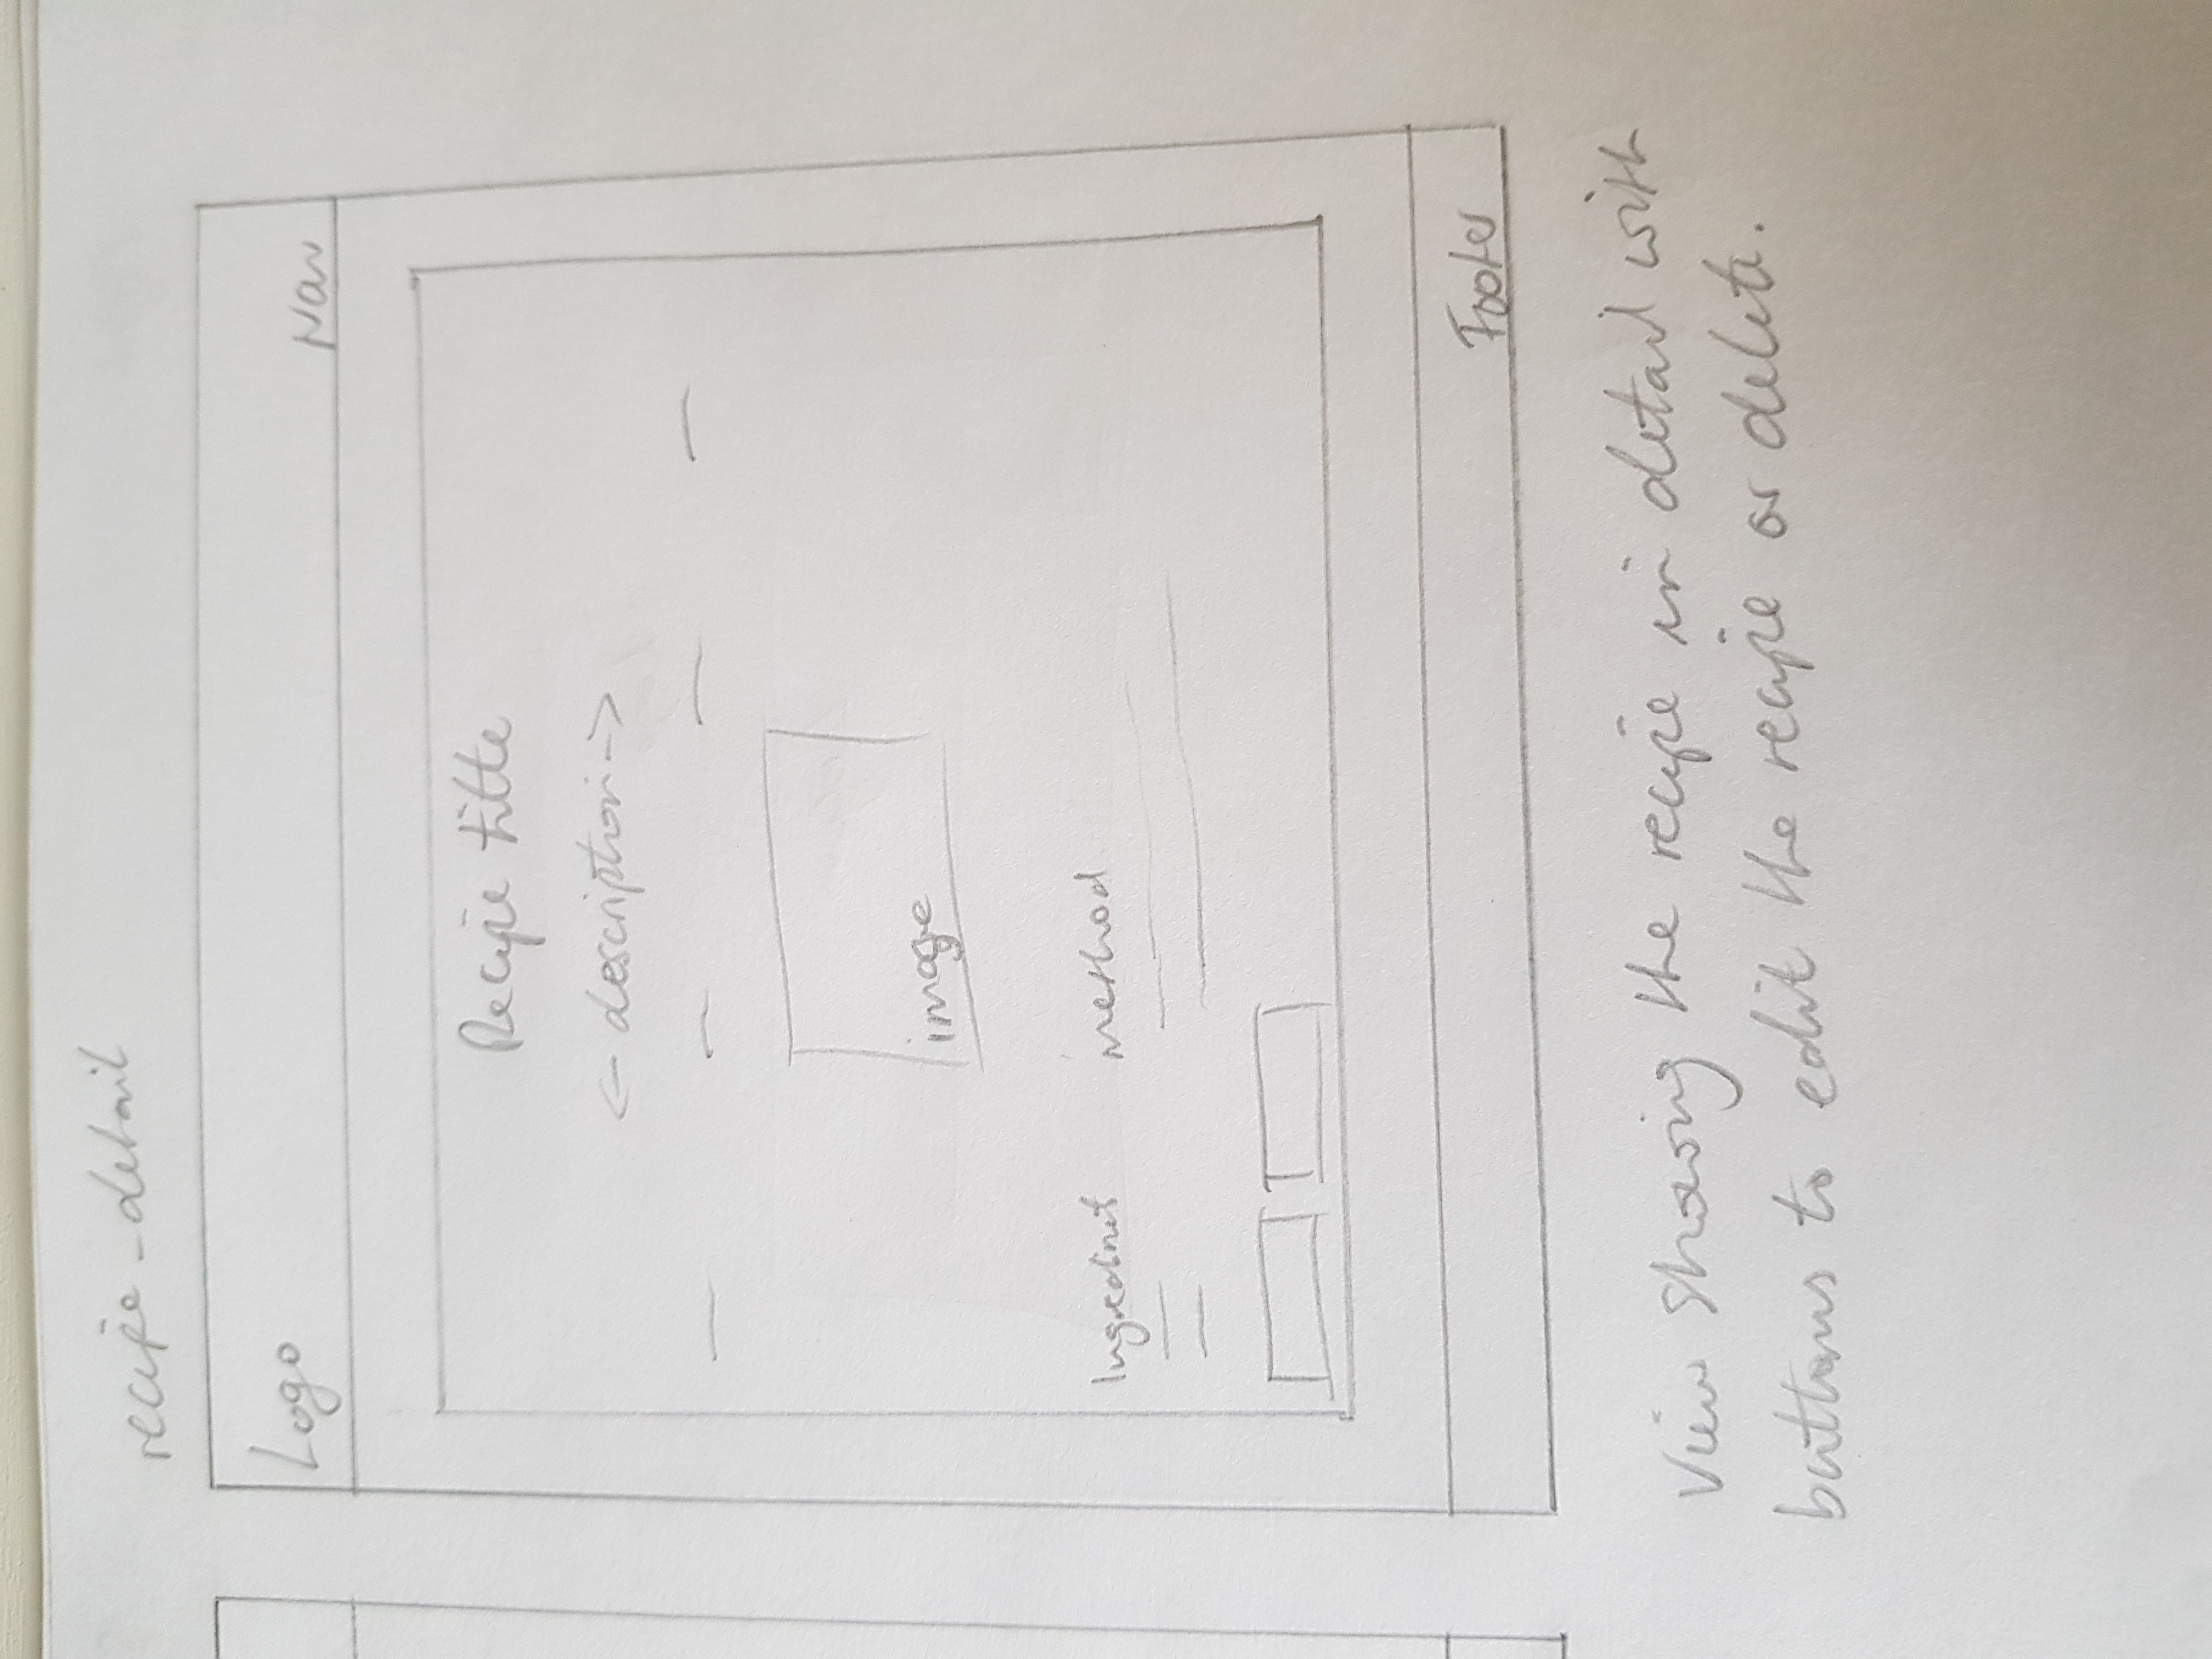 recipe_detail
Logo
Nav
Recipe title
<- description ->
image
Ingredinets
method
Footer
View showing the recipe in detail with
buttons to edit the recipe or delete.